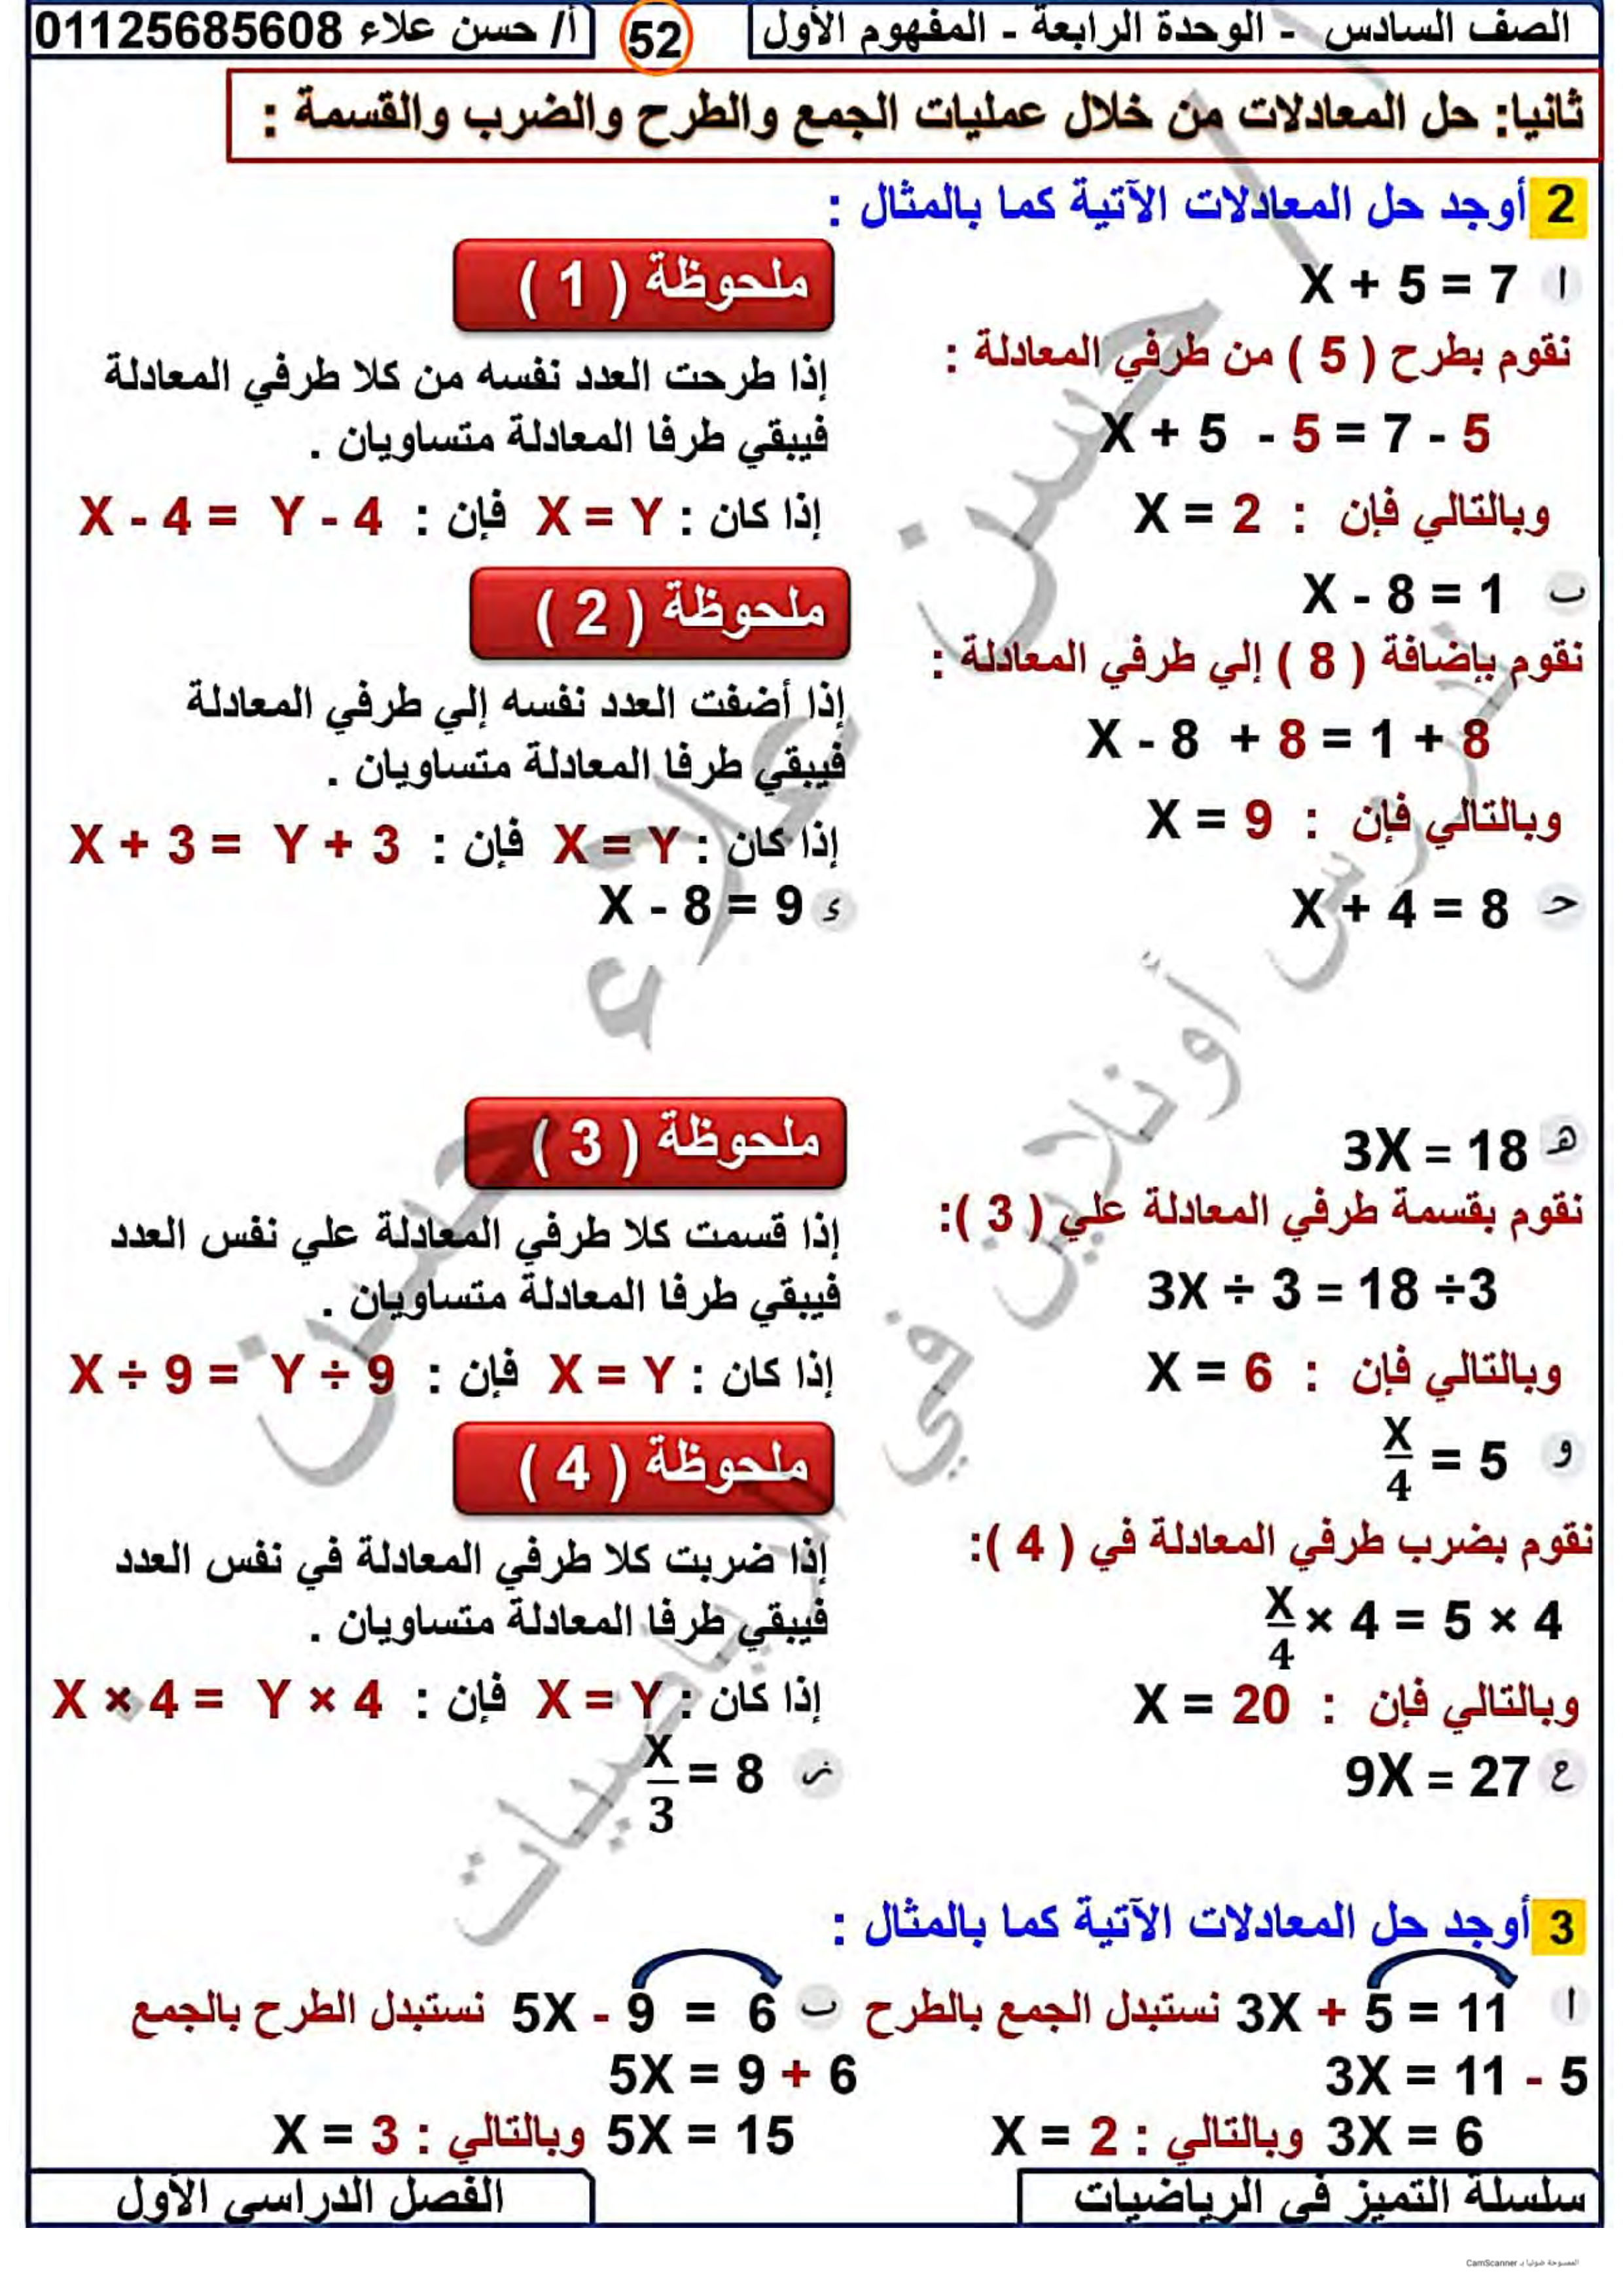 الصف السادس - الوحدة الرابعة - المفهوم الأول
52
أ/ حسن علاء 01125685608
ثانيا: حل المعادلات من خلال عمليات الجمع والطرح والضرب والقسمة :
2 أوجد حل المعادلات الآتية كما بالمثال :
ا X + 5 = 7
نقوم بطرح ( 5 ) من طرفي المعادلة :
X + 5 - 5 = 7 - 5
وبالتالي فإن : X = 2
ملحوظة ( 1 )
إذا طرحت العدد نفسه من كلا طرفي المعادلة
فيبقي طرفا المعادلة متساويان .
إذا كان : X = Y فإن : X - 4 = Y - 4
ب X - 8 = 1
نقوم بإضافة ( 8 ) إلي طرفي المعادلة :
X - 8 + 8 = 1 + 8
وبالتالي فإن : X = 9
ملحوظة ( 2 )
إذا أضفت العدد نفسه إلي طرفي المعادلة
فيبقي طرفا المعادلة متساويان .
إذا كان : X = Y فإن : X + 3 = Y + 3
حـ X + 4 = 8
ء X - 8 = 9
هـ 3X = 18
نقوم بقسمة طرفي المعادلة علي ( 3 ):
3X ÷ 3 = 18 ÷3
وبالتالي فإن : X = 6
ملحوظة ( 3 )
إذا قسمت كلا طرفي المعادلة علي نفس العدد
فيبقي طرفا المعادلة متساويان .
إذا كان : X = Y فإن : X ÷ 9 = Y ÷ 9
و X/4 = 5
نقوم بضرب طرفي المعادلة في ( 4 ):
X/4 × 4 = 5 × 4
وبالتالي فإن : X = 20
ملحوظة ( 4 )
إذا ضربت كلا طرفي المعادلة في نفس العدد
فيبقي طرفا المعادلة متساويان .
إذا كان : X = Y فإن : X × 4 = Y × 4
ع 9X = 27
ز X/3 = 8
3 أوجد حل المعادلات الآتية كما بالمثال :
ا 3X + 5 = 11 نستبدل الجمع بالطرح
3X = 11 - 5
3X = 6 وبالتالي : X = 2
ب 5X - 9 = 6 نستبدل الطرح بالجمع
5X = 9 + 6
5X = 15 وبالتالي : X = 3
سلسلة التميز في الرياضيات
الفصل الدراسي الأول
الممسوحة ضوئيا بـ CamScanner